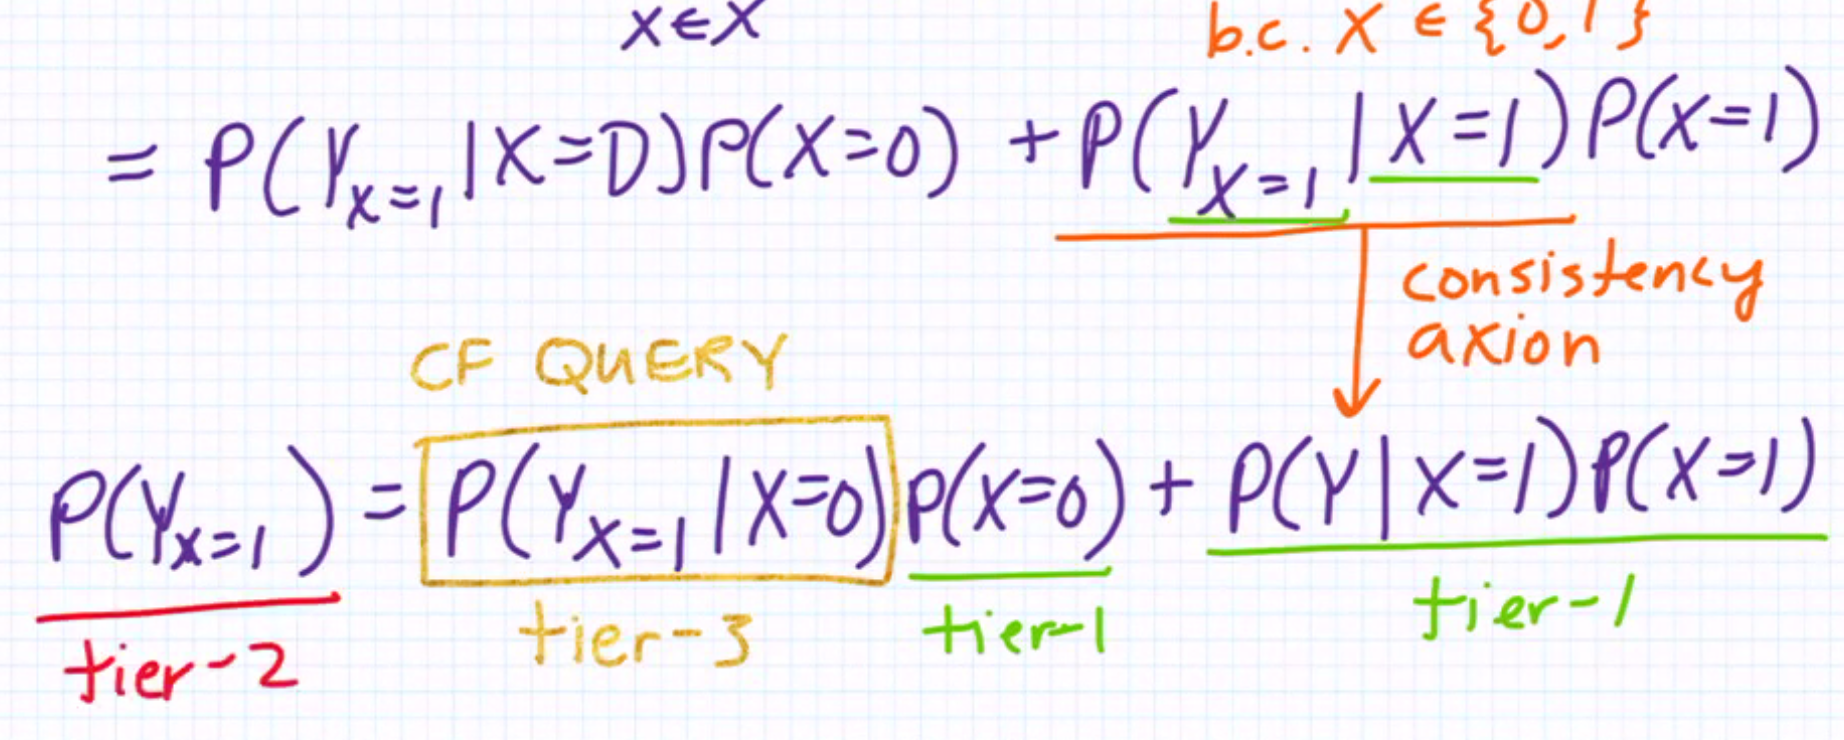 x∈X
b.c. X ∈ {0,1}
= P(Y_{X=1} | X=D)P(X=0) + P(Y_{X=1} | X=1)P(X=1)
consistency
axion
CF QUERY
P(Y_{X=1}) = P(Y_{X=1} | X=0) P(X=0) + P(Y | X=1)P(X=1)
tier-2 tier-3 tier-1 tier-1